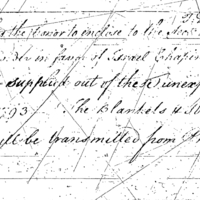 the honor to inclose to the
in favor of Israel Chapi
supplied out of these unexp
93 The Blankets &
ll be transmitted from